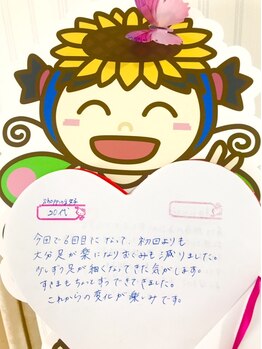 20代
今回で6回目になって、初回よりも
大分足が楽になりむくみも減りました。
少しずつ足が細くなってきた気がします。
すきまもちょいすつできてきました。
これからの変化が楽しみです。